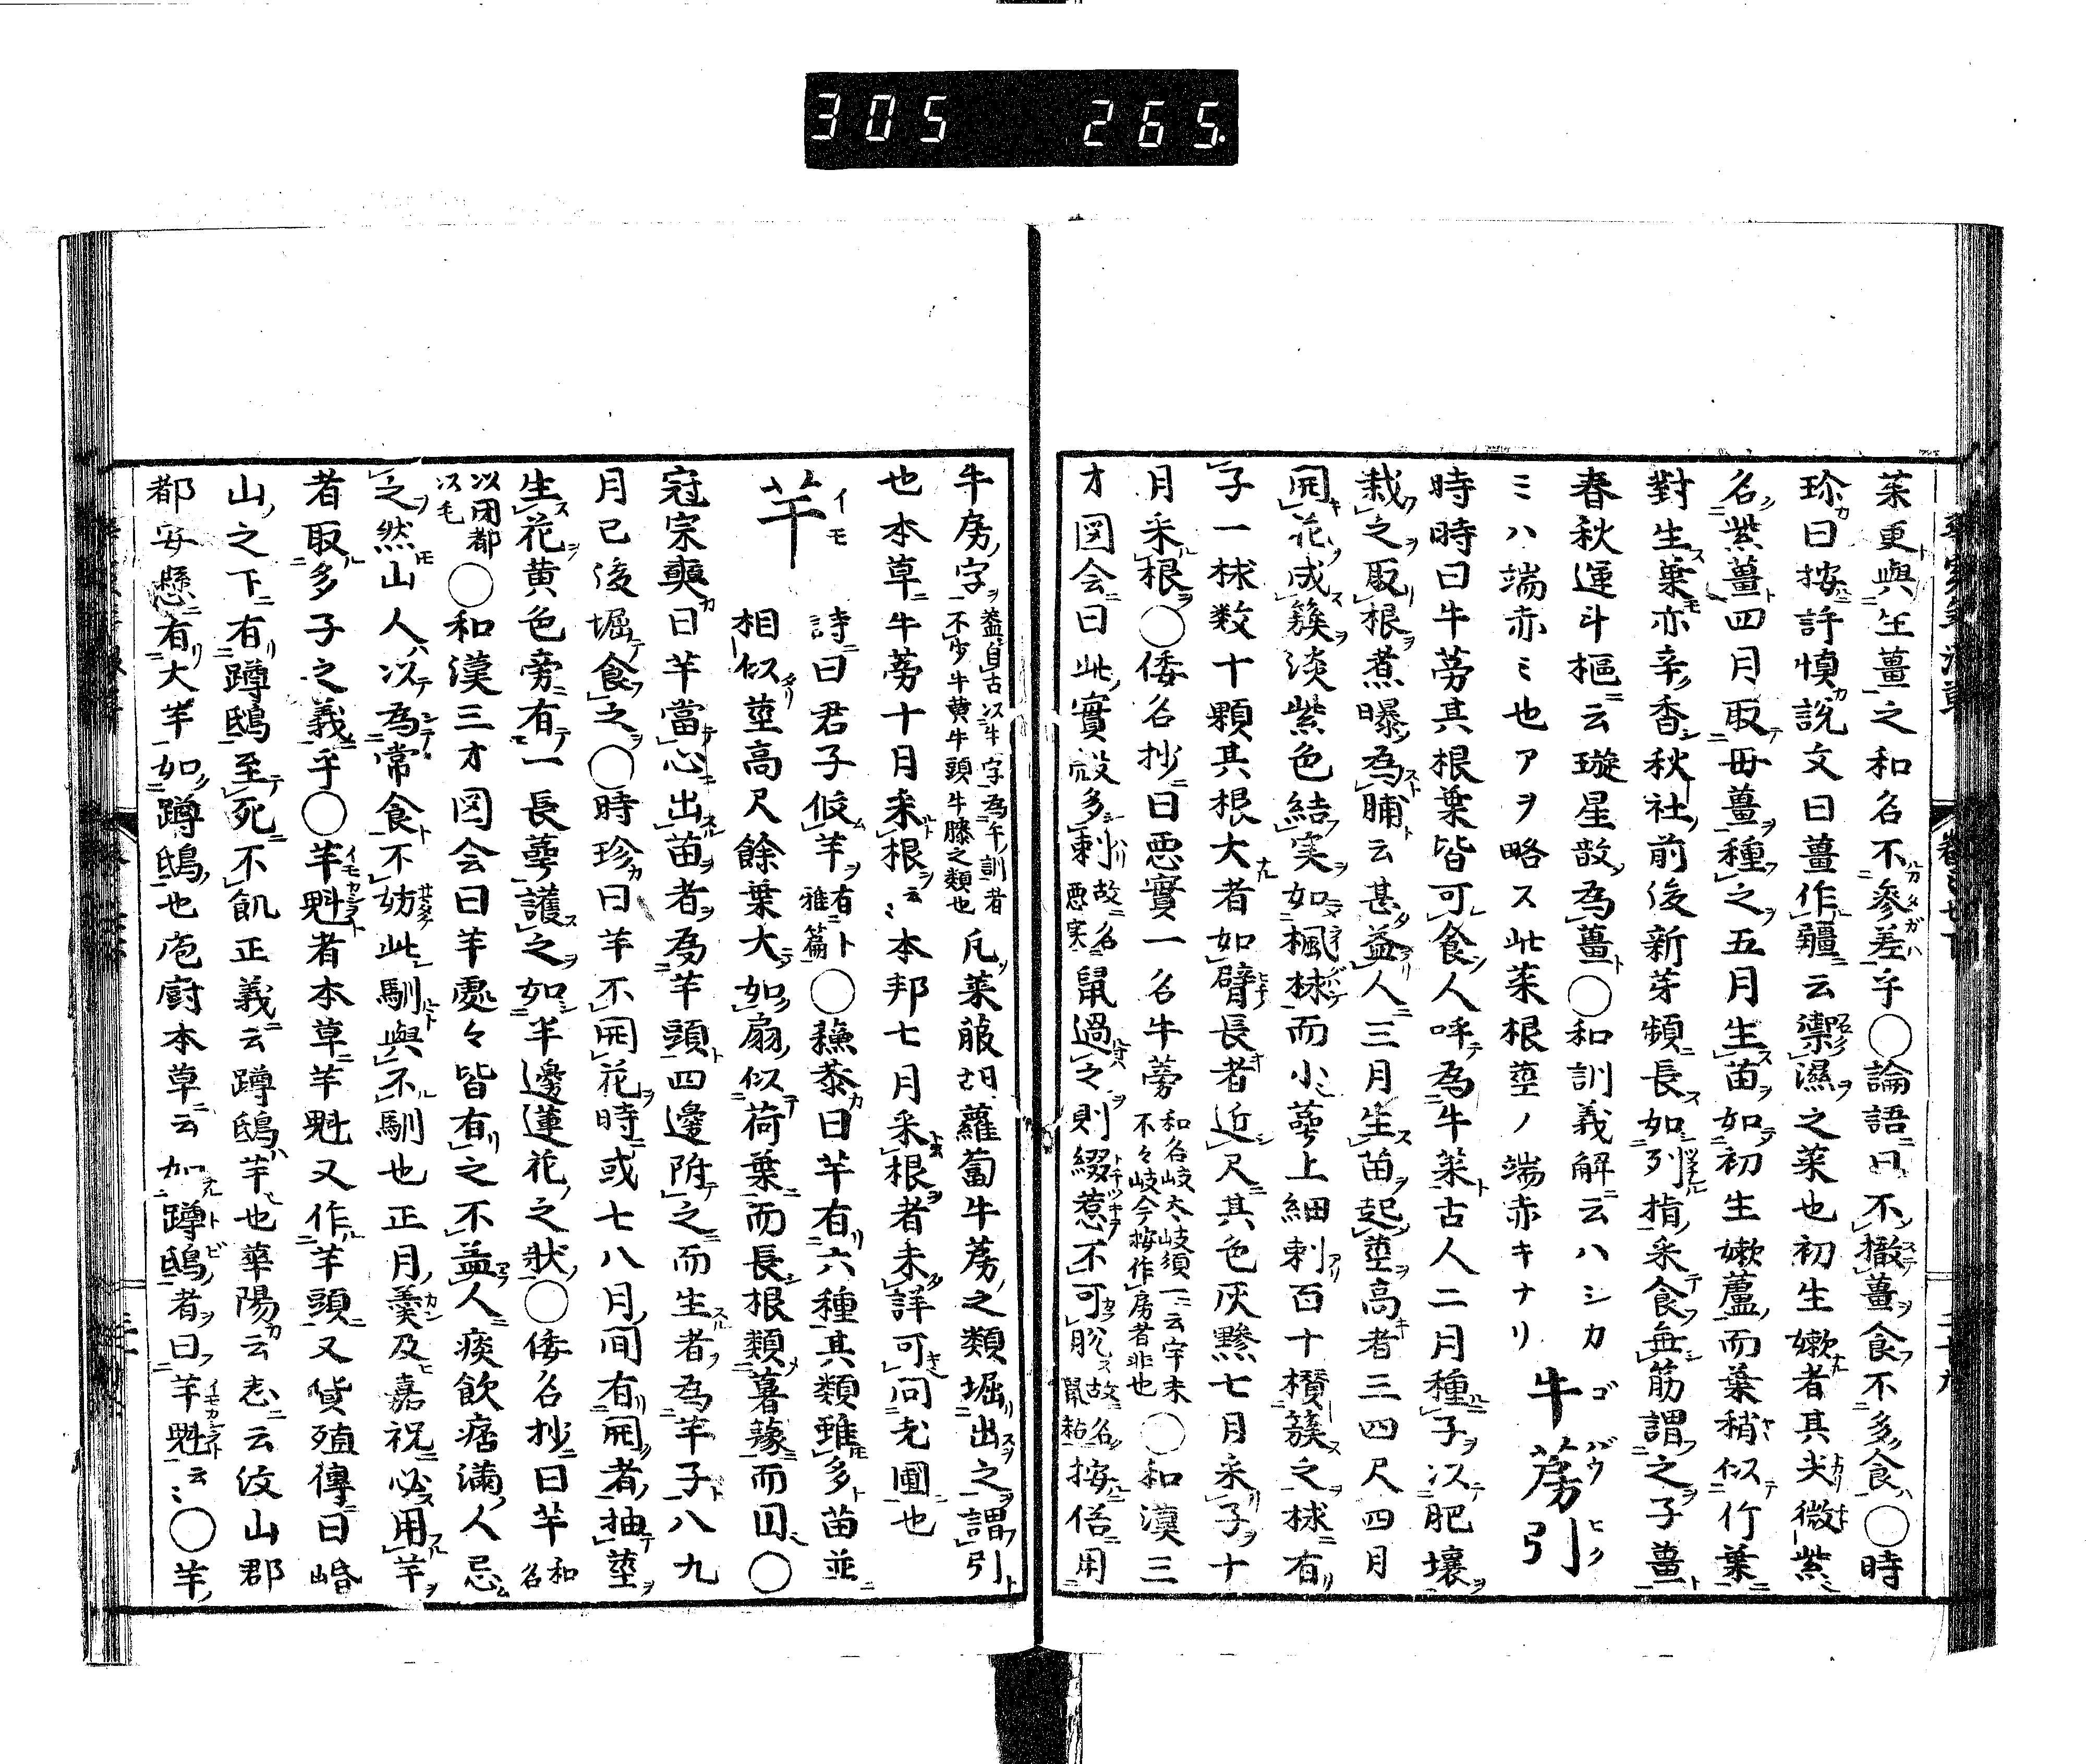 305 265.
菜更與生薑之和名不參差乎○論語曰不撤薑食不多食○時
珍曰按許慎說文曰薑作䕬云禦濕之菜也初生嫰者其尖微紫
名紫薑四月取母薑種之五月生苗如初生嫰蘆而葉稍似竹葉
對生葉亦辛香秋社前後新芽頻長如列指采食無筋謂之子薑
春秋運斗樞云璇星散為薑○和訓義解云ハシカ
ミハ端赤ミ也アヲ略ス此菜根莖ノ端赤キナリ 牛蒡引
時時曰牛蒡其根葉皆可食人呼為牛菜古人二月種子以肥壤
栽之取根煮曝為脯云甚益人三月生苗起莖高者三四尺四月
開花成簇淡紫色結実如楓梂而小萼上細刺百十欑簇之梂有
子一梂数十顆其根大者如臂長者近尺其色灰黲七月采子十
月采根○倭名抄曰悪實一名牛蒡和名岐太岐須一云宇末不々岐今按作房者非也○和漢三
才図会曰此實殼多刺故名悪実鼠過之則綴惹不可脫故名鼠粘按俗用
牛房字蓋自古以牛字為午訓者不少牛黄牛頭牛膝之類也凡菜菔胡蘿蔔牛蒡之類堀出之謂引
也本草牛蒡十月来根云〻本邦七月采根者未詳可問老圃也
芋 詩曰君子攸芋有卜雅篇○蘓恭曰芋有六種其類雖多苗並
相似莖高尺餘葉大如扇似荷葉而長根類薯蕷而圓○
冦宗奭曰芋當心出苗者為芋頭四邊附之而生者為芋子八九
月已後堀食之○時珍曰芋不開花時或七八月間有開者抽莖
生花黄色旁有一長萼護之如半邊蓮花之狀○倭名抄曰芋和名
以閉都以毛○和漢三才図会曰芋處々皆有之不益人痰飲痞滿人忌
之然山人以為常食不妨此馴與不馴也正月羹及嘉祝必用芋
者取多子之義乎○芋魁者本草芋魁又作芋頭又貨殖傳曰㟭
山之下有蹲鴟至死不飢正義云蹲鴟芋也華陽云志云汶山郡
都安懸有大芋如蹲鴟也庖厨本草云如蹲鴟者曰芋魁云〻○芋